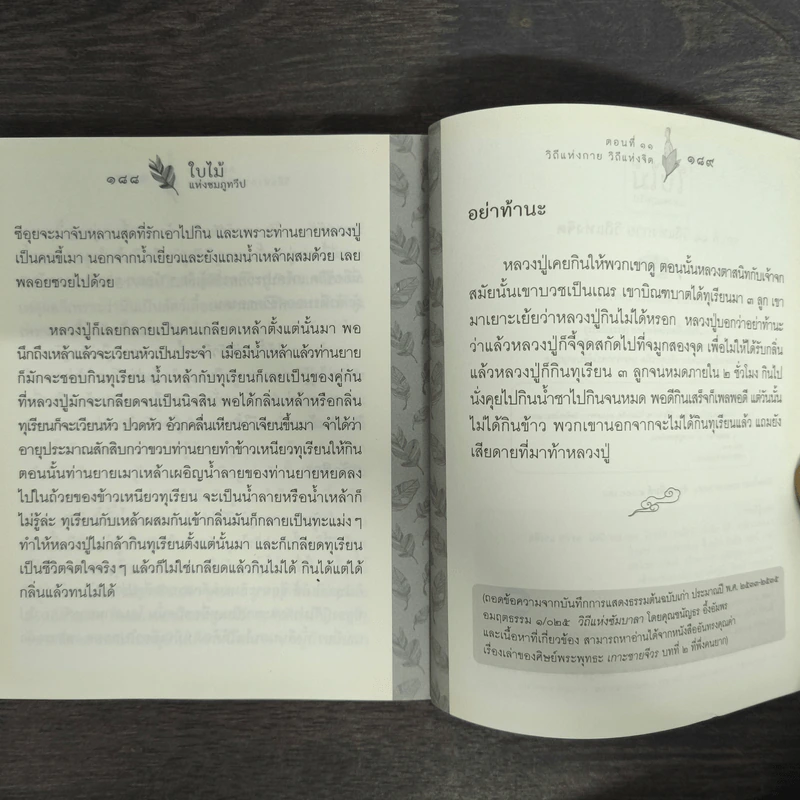 ๑๘๘
ใบไม้
แห่งชมภูทวีป
ซีอุยจะมาจับหลานสุดที่รักเอาไปกิน และเพราะท่านยายหลวงปู่
เป็นคนขี้เมา นอกจากน้ำเยี่ยวและยังแถมน้ำเหล้าผสมด้วย เลย
พลอยซวยไปด้วย
หลวงปู่ก็เลยกลายเป็นคนเกลียดเหล้าตั้งแต่นั้นมา พอ
นึกถึงเหล้าแล้วจะเวียนหัวเป็นประจำ เมื่อมีน้ำเหล้าแล้วท่านยาย
ก็มักจะชอบกินทุเรียน น้ำเหล้ากับทุเรียนก็เลยเป็นของคู่กัน
ที่หลวงปู่มักจะเกลียดจนเป็นนิจสิน พอได้กลิ่นเหล้าหรือกลิ่น
ทุเรียนก็จะเวียนหัว ปวดหัว อ้วกคลื่นเหียนอาเจียนขึ้นมา จำได้ว่า
อายุประมาณสักสิบกว่าขวบท่านยายทำข้าวเหนียวทุเรียนให้กิน
ตอนนั้นท่านยายเมาเหล้าเผอิญน้ำลายของท่านยายหยดลง
ไปในถ้วยของข้าวเหนียวทุเรียน จะเป็นน้ำลายหรือน้ำเหล้าก็
ไม่รู้ล่ะ ทุเรียนกับเหล้าผสมกันเข้ากลิ่นมันก็กลายเป็นทะแม่งๆ
ทำให้หลวงปู่ไม่กล้ากินทุเรียนตั้งแต่นั้นมา และก็เกลียดทุเรียน
เป็นชีวิตจิตใจจริงๆ แล้วก็ไม่ใช่เกลียดแล้วกินไม่ได้ กินได้แต่ได้
กลิ่นแล้วทนไม่ได้
ตอนที่ ๑๑
วิถีแห่งกาย วิถีแห่งจิต
๑๘๙
อย่าท้านะ
หลวงปู่เคยกินให้พวกเขาดู ตอนนั้นหลวงตาสนิทกับเจ้าจก
สมัยนั้นเขาบวชเป็นเณร เขาบิณฑบาตได้ทุเรียนมา ๓ ลูก เขา
มาเยาะเย้ยว่าหลวงปู่กินไม่ได้หรอก หลวงปู่บอกว่าอย่าท้านะ
ว่าแล้วหลวงปู่ก็จี้จุดสกัดไปที่จมูกสองจุด เพื่อไม่ให้ได้รับกลิ่น
แล้วหลวงปู่ก็กินทุเรียน ๓ ลูกจนหมดภายใน ๒ ชั่วโมง กินไป
นั่งคุยไปกินน้ำชาไปกินจนหมด พอดีกินเสร็จก็เพลพอดี แต่วันนั้น
ไม่ได้กินข้าว พวกเขานอกจากจะไม่ได้กินทุเรียนแล้ว แถมยัง
เสียดายที่มาท้าหลวงปู่
(ถอดข้อความจากบันทึกการแสดงธรรมต้นฉบับเก่า ประมาณปี พ.ศ. ๒๕๓๓-๒๕๓๕
อมฤตธรรม ๑/๐๒๕ วิถีแห่งชัมบาลา โดยคุณชนัญธร อึ้งอัมพร
และเนื้อหาที่เกี่ยวข้อง สามารถหาอ่านได้จากหนังสืออันทรงคุณค่า
เรื่องเล่าของศิษย์พระพุทธะ เกาะชายจีวร บทที่ ๒ ที่พึ่งคนยาก)